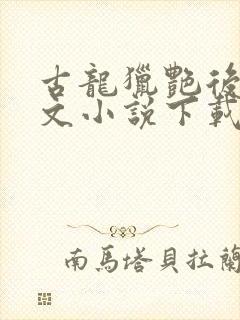 古龍獵艷後
文小說下載
南馬塔貝拉蘭